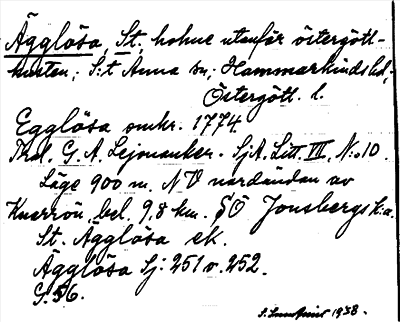 Ägglösa, St., holme utanför östergött-
kusten; S:t Anna sn; Hammarkinds hd;
Östergött. l.
Egglösa omkr. 1774.
G. A. Lejonanker. SjA. Litt. VII, N:o 10.
Läge 900 m. NV nordändan av
Knerrön, bel. 9,8 km. SÖ Jonsbergs k:a.
St. Ägglösa ek.
Ägglösa Sj: 251 v. 252.
G. 56.
1938.